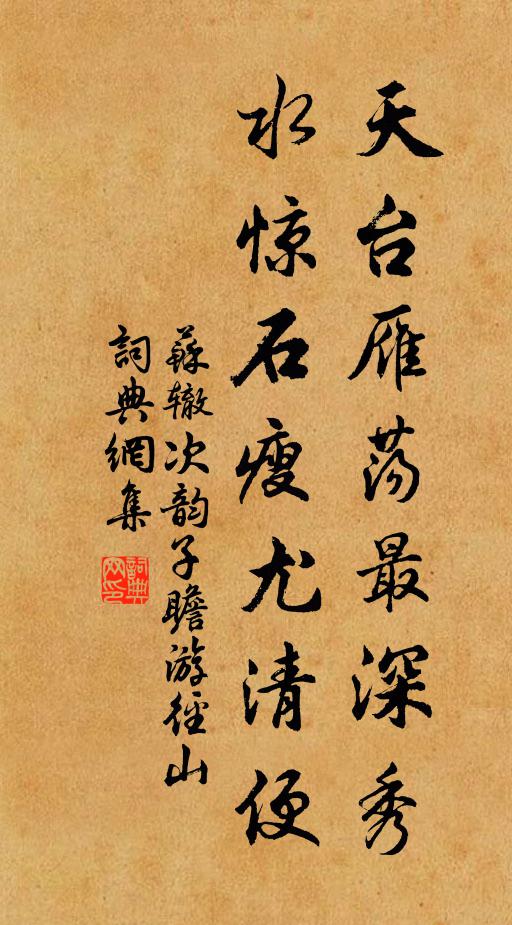 天台雁荡最深秀
水惊石瘦尤清便
蘇辙次韵子瞻游径山
詞典網集
詞典
网印